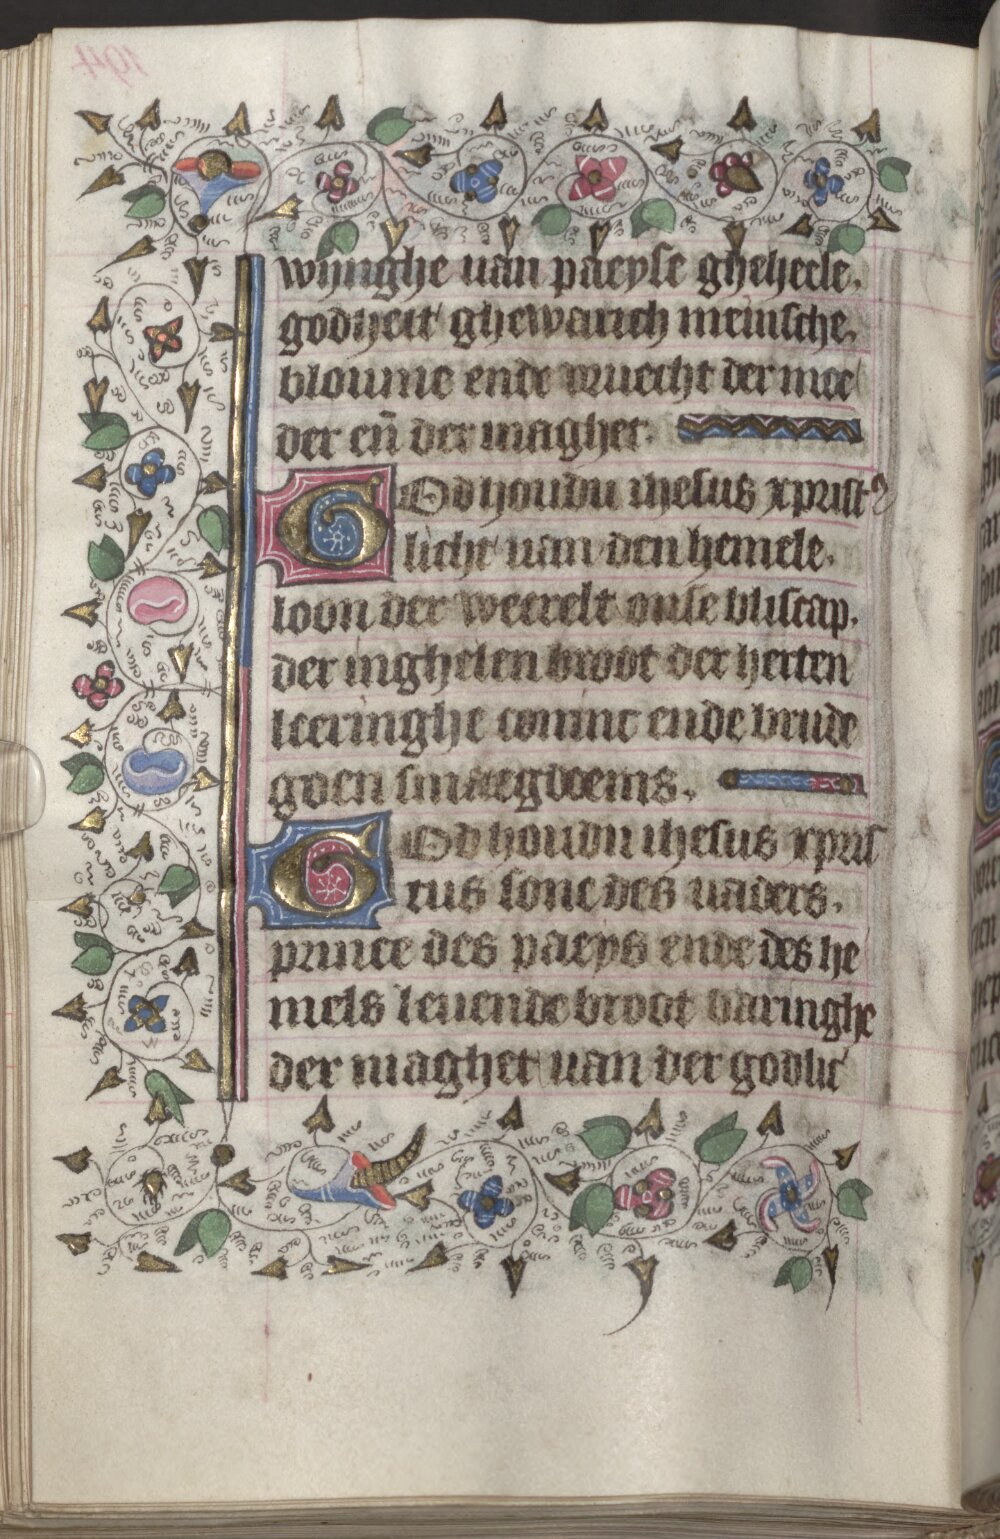 wijnghe uan paeyse gheheele.
godheit ghewarich meinsche.
bloume ende vruecht der moe
der eñ der maghet.
God houdu ihesus xprist
licht uan den hemele.
loon der weerelt onse bliscap.
der inghelen broot der herten
leeringhe coninc ende brude
goen smaegdoems.
God houdu ihesus xpris
tus sone des uaders.
prince des paeys ende des he
mels leuende broot baringhe
der maghet uan der godlic